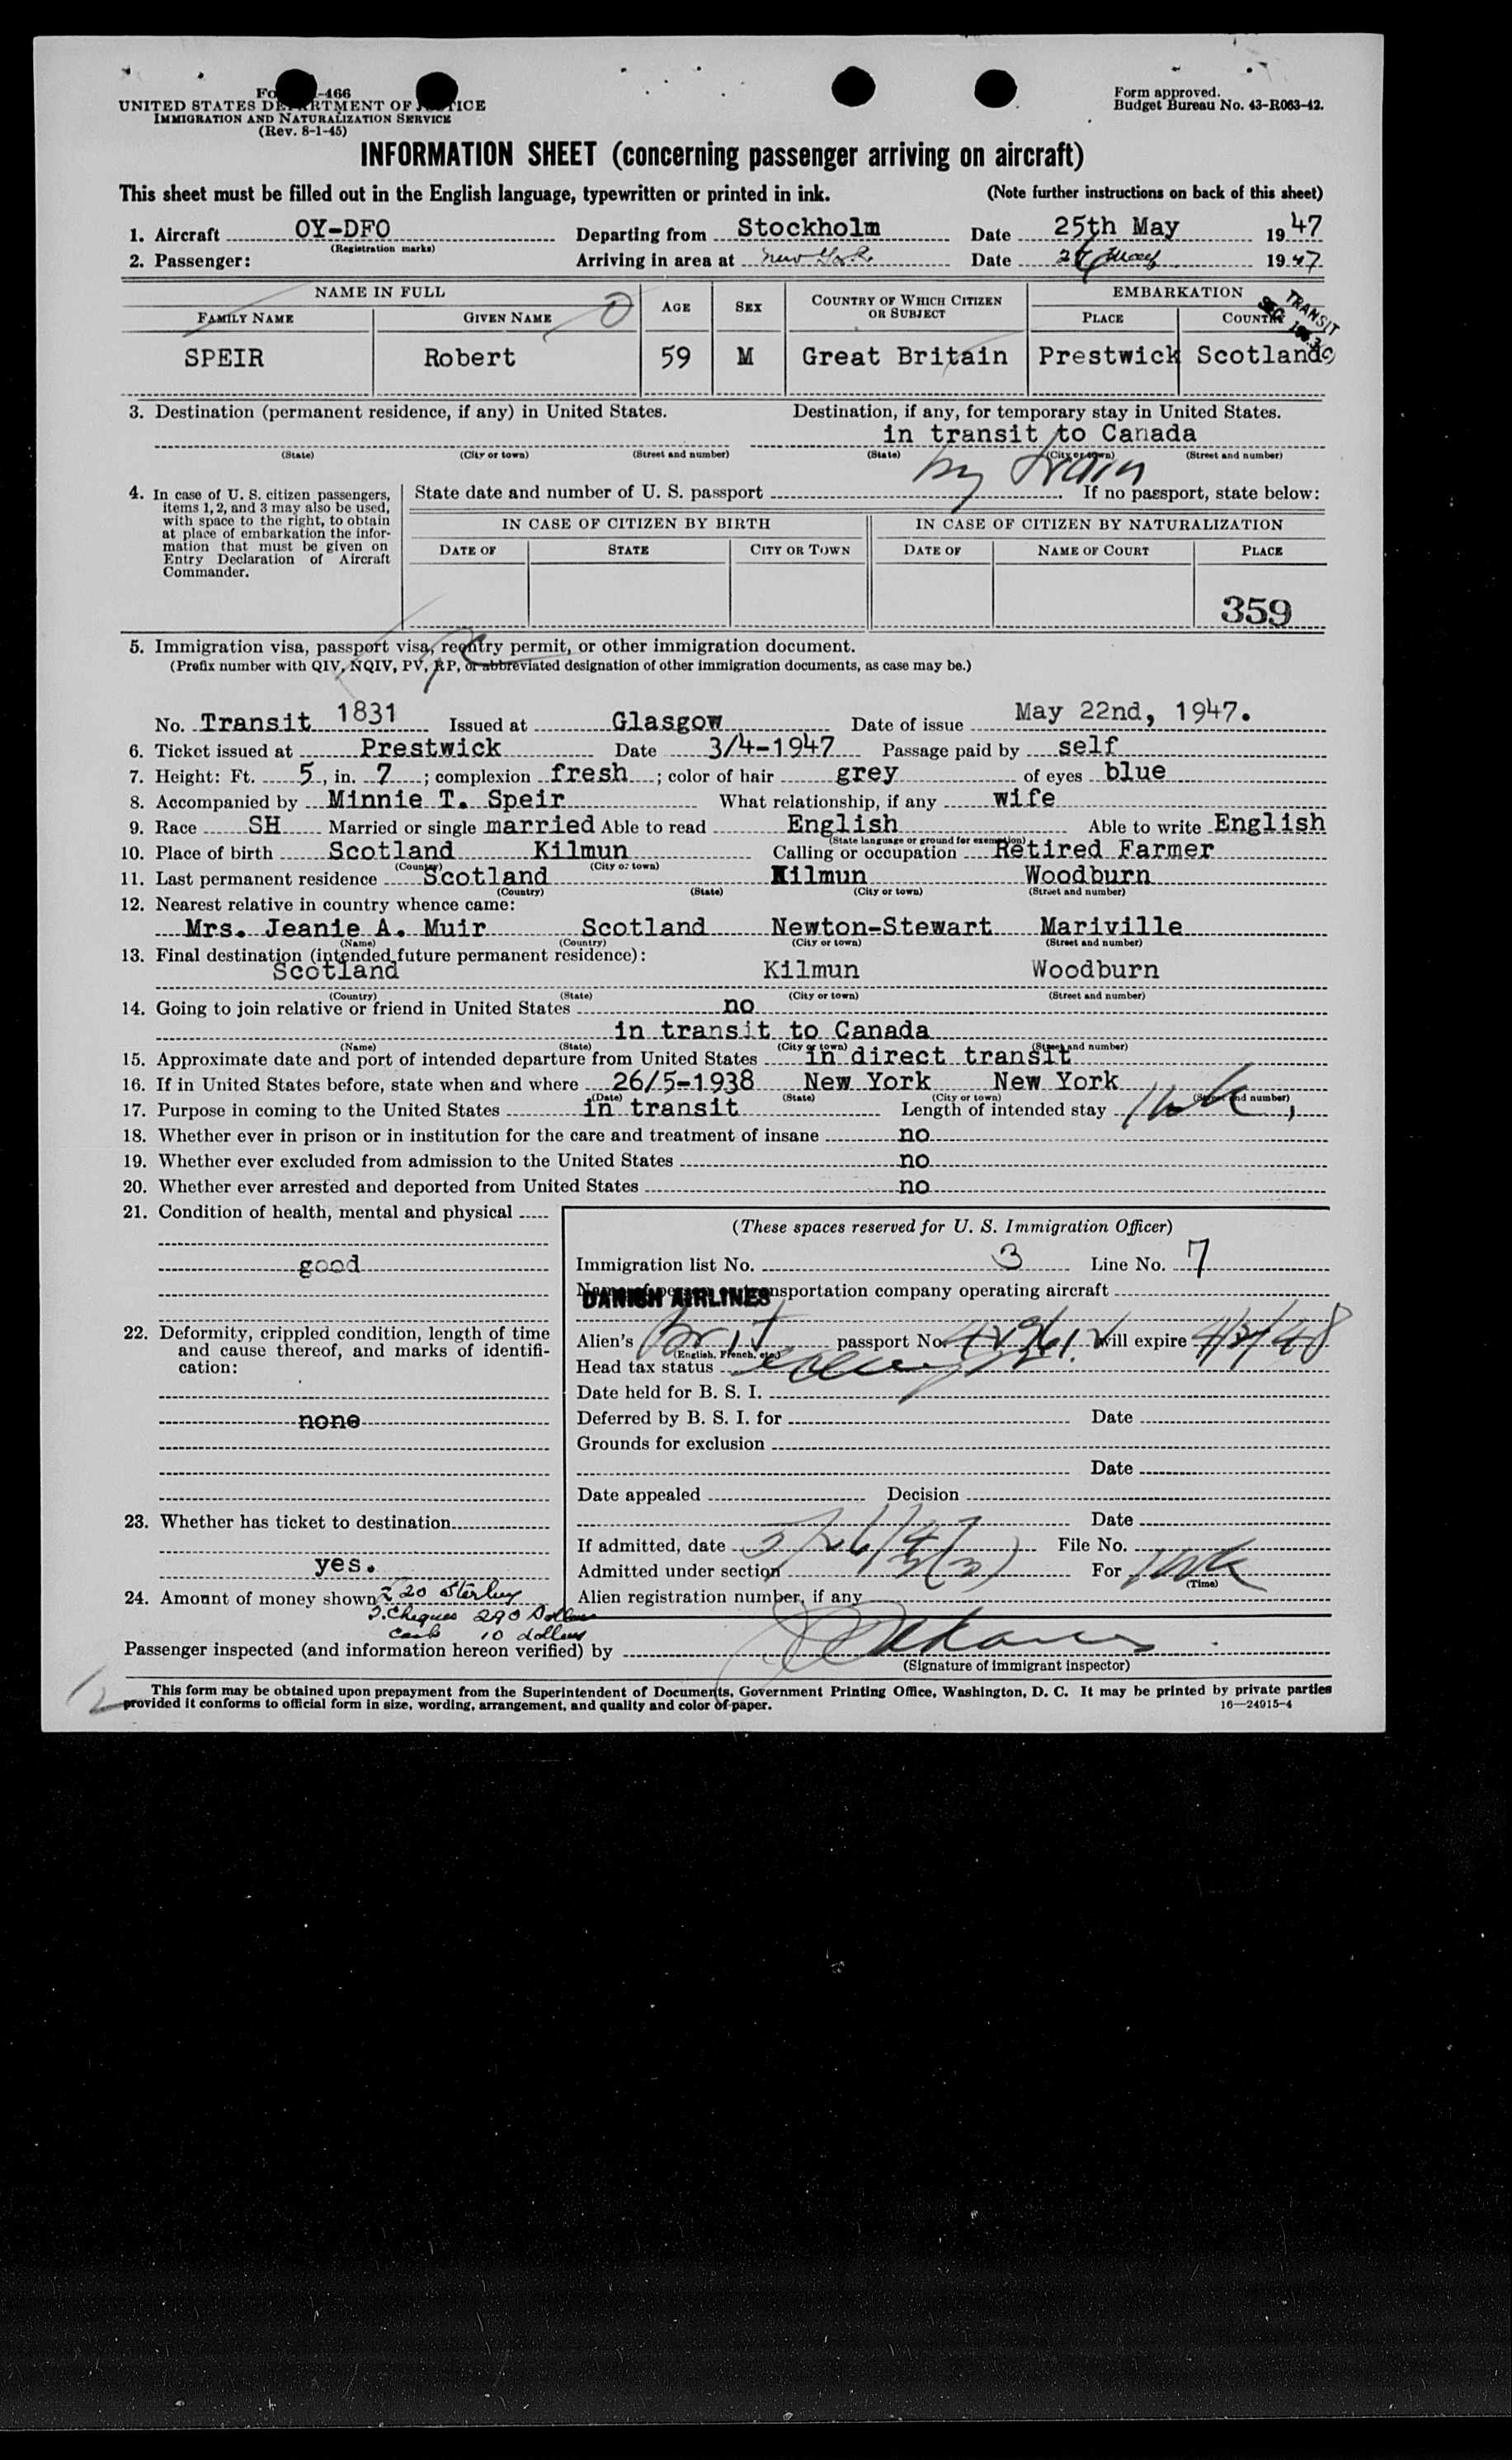 Fo -466
UNITED STATES DEPARTMENT OF JUSTICE
IMMIGRATION AND NATURALIZATION SERVICE
(Rev. 8-1-45)
Form approved.
Budget Bureau No. 43-R063-42.
INFORMATION SHEET (concerning passenger arriving on aircraft)
This sheet must be filled out in the English language, typewritten or printed in ink. (Note further instructions on back of this sheet)
1. Aircraft OY-DFO Departing from Stockholm Date 25th May 1947
(Registration marks)
2. Passenger: Arriving in area at New York Date 26 May 1947
NAME IN FULL AGE SEX COUNTRY OF WHICH CITIZEN OR SUBJECT EMBARKATION
FAMILY NAME GIVEN NAME PLACE COUNTRY
TRANSIT
SPEIR Robert 59 M Great Britain Prestwick Scotland
3. Destination (permanent residence, if any) in United States. Destination, if any, for temporary stay in United States.
in transit to Canada
(State) (City or town) (Street and number) (State) (City or town) (Street and number)
by train
4. In case of U. S. citizen passengers, items 1, 2, and 3 may also be used, with space to the right, to obtain at place of embarkation the information that must be given on Entry Declaration of Aircraft Commander.
State date and number of U. S. passport . If no passport, state below:
IN CASE OF CITIZEN BY BIRTH IN CASE OF CITIZEN BY NATURALIZATION
DATE OF STATE CITY OR TOWN DATE OF NAME OF COURT PLACE
359
5. Immigration visa, passport visa, reentry permit, or other immigration document.
(Prefix number with QIV, NQIV, PV, RP, or abbreviated designation of other immigration documents, as case may be.)
No. Transit 1831 Issued at Glasgow Date of issue May 22nd, 1947.
6. Ticket issued at Prestwick Date 3/4-1947 Passage paid by self
7. Height: Ft. 5, in. 7; complexion fresh; color of hair grey of eyes blue
8. Accompanied by Minnie T. Speir What relationship, if any wife
9. Race SH Married or single married Able to read English Able to write English
(State language or ground for exemption)
10. Place of birth Scotland Kilmun Calling or occupation Retired Farmer
(Country) (City or town)
11. Last permanent residence Scotland Kilmun Woodburn
(Country) (State) (City or town) (Street and number)
12. Nearest relative in country whence came:
Mrs. Jeanie A. Muir Scotland Newton-Stewart Mariville
(Name) (Country) (City or town) (Street and number)
13. Final destination (intended future permanent residence):
Scotland Kilmun Woodburn
(Country) (State) (City or town) (Street and number)
14. Going to join relative or friend in United States no
in transit to Canada
(Name) (State) (City or town) (Street and number)
15. Approximate date and port of intended departure from United States in direct transit
16. If in United States before, state when and where 26/5-1938 New York New York
(Date) (State) (City or town) (Street and number)
17. Purpose in coming to the United States in transit Length of intended stay 1 wk
18. Whether ever in prison or in institution for the care and treatment of insane no
19. Whether ever excluded from admission to the United States no
20. Whether ever arrested and deported from United States no
21. Condition of health, mental and physical
good
22. Deformity, crippled condition, length of time and cause thereof, and marks of identification:
none
23. Whether has ticket to destination
yes.
24. Amount of money shown £20 Sterling
T. Cheques 290 Dollars
Cash 10 dollars
(These spaces reserved for U. S. Immigration Officer)
Immigration list No. 3 Line No. 7
Name of person or transportation company operating aircraft
DANISH AIRLINES
Alien's Brit passport No. will expire 4/3/48
(English, French, etc.)
Head tax status
Date held for B. S. I.
Deferred by B. S. I. for Date
Grounds for exclusion
Date
Date appealed Decision
Date
If admitted, date 5/26/47 File No.
Admitted under section 3(3) For 1 wk
(Time)
Alien registration number, if any
Passenger inspected (and information hereon verified) by
(Signature of immigrant inspector)
This form may be obtained upon prepayment from the Superintendent of Documents, Government Printing Office, Washington, D. C. It may be printed by private parties
provided it conforms to official form in size, wording, arrangement, and quality and color of paper. 16—24915-4
12